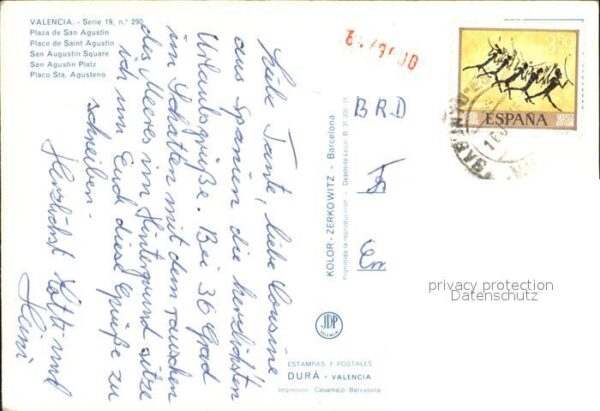 VALENCIA. - Serie 19, n.º 290
Plaza de San Agustin
Place de Saint Agustin
San Augustin Square
San Agustin Platz
Placo Sta. Agusteno
Liebe Tante, liebe Cousine
aus Spanien die herzlichsten
Urlaubsgrüße. Bei 36 Grad
im Schatten mit dem rauschen
des Meeres im Hintergrund sitze
ich um Euch diese Grüße zu
schreiben.
Herzlichst Lotti und
Heini
KOLOR-ZERKOWITZ - Barcelona
Prohibida la reproducción - Depósito Legal B.
JDP
VALENCIA
ESTAMPAS Y POSTALES
DURÁ - VALENCIA
Impresión: Casamajó-Barcelona
BRD
3,50
ESPAÑA
privacy protection
Datenschutz